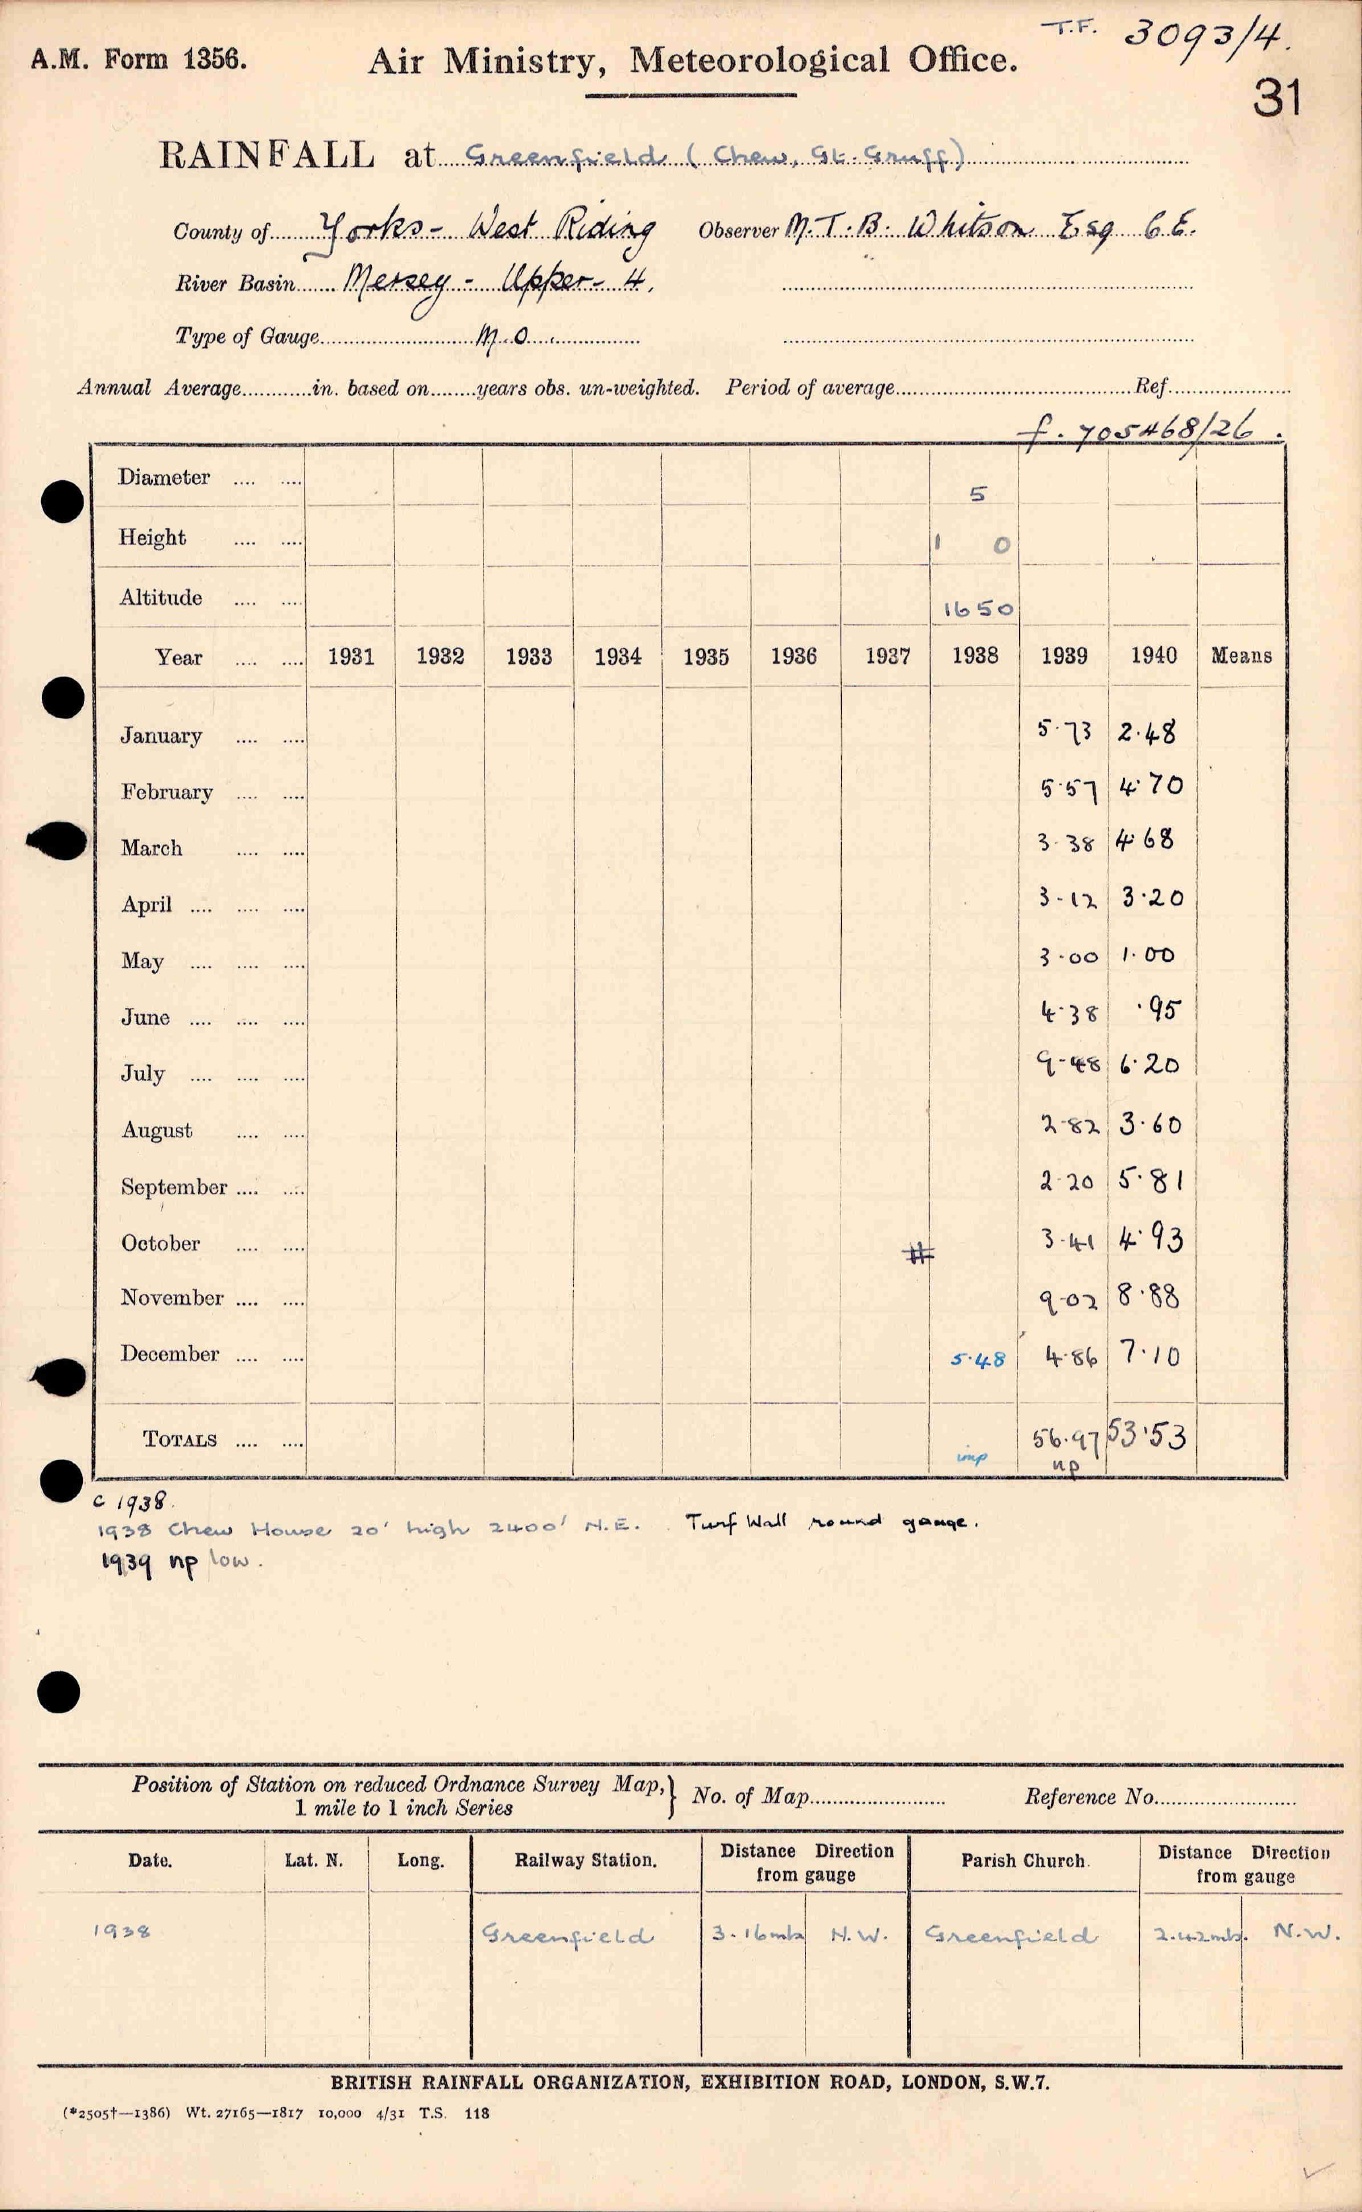 T.F. 3093/4.
A.M. Form 1356. Air Ministry, Meteorological Office.
31
RAINFALL at Greenfield (Chew, Gt. Gruff)
County of Yorks - West Riding Observer M.T.B. Whitson Esq C.E.
River Basin Mersey - Upper - 4.
Type of Gauge M.O.
Annual Average in. based on years obs. un-weighted. Period of average Ref.
f. 705468/26.
Diameter .... .... 5
Height .... .... 1 0
Altitude .... .... 1650
Year .... .... 1931 1932 1933 1934 1935 1936 1937 1938 1939 1940 Means
January .... .... 5.73 2.48
February .... .... 5.57 4.70
March .... .... 3.38 4.68
April .... .... .... 3.12 3.20
May .... .... .... 3.00 1.00
June .... .... .... 4.38 .95
July .... .... .... 9.48 6.20
August .... .... 2.82 3.60
September .... .... 2.20 5.81
October .... .... # 3.41 4.93
November .... .... 9.02 8.88
December .... .... 5.48 4.86 7.10
TOTALS .... .... imp 56.97 53.53
np
c 1938.
1938 Chew House 20' high 2400' N.E. Turf Wall round gauge.
1939 np low.
Position of Station on reduced Ordnance Survey Map, } No. of Map Reference No.
1 mile to 1 inch Series
Date. Lat. N. Long. Railway Station. Distance Direction from gauge Parish Church. Distance Direction from gauge
1938 Greenfield 3.16 mls N.W. Greenfield 2.42 mls. N.W.
BRITISH RAINFALL ORGANIZATION, EXHIBITION ROAD, LONDON, S.W.7.
(*2505†—1386) Wt. 27165—1817 10,000 4/31 T.S. 118